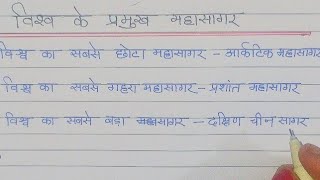 विश्व के प्रमुख महासागर
विश्व का सबसे छोटा महासागर - आर्कटिक महासागर
विश्व का सबसे गहरा महासागर - प्रशांत महासागर
विश्व का सबसे बड़ा सागर - दक्षिण चीन सागर